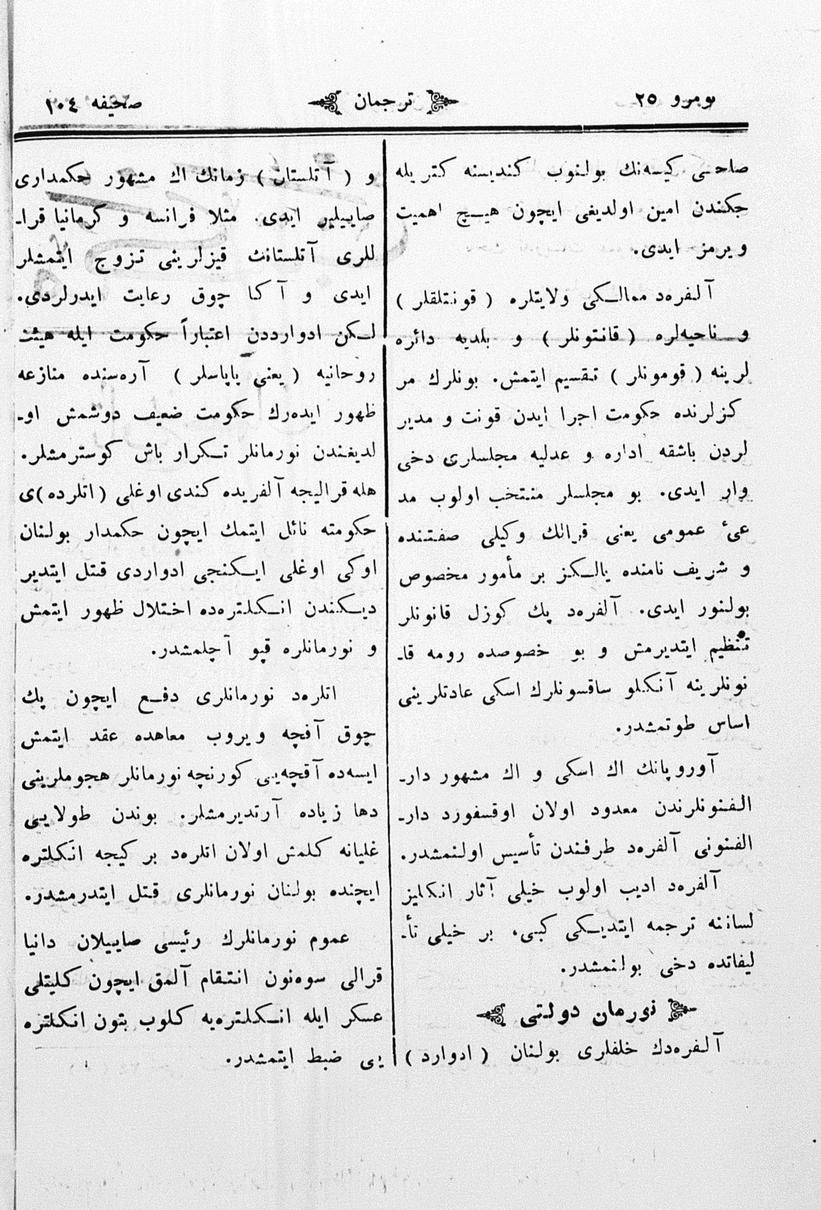 نومرو ٢٥
ترجمان
صحیفه ٢٠٤
صاحبی كیسه‌نك بولنوب كندیسنه كتریله
جكندن امین اولدیغی ایچون هیـچ اهمیت
ویرمز ایدی.
آلفره‌د ممالـكی ولایتلره ( قونتلقلر )
و ناحیه‌لره ( قانتونلر ) و بلدیه دائره
لرینه ( قومونلر ) تقسیم ایتمش. بونلرك مر
كزلرنده حكومت اجرا ایدن قونت و مدیر
لردن باشقه اداره و عدلیه مجلسلری دخی
وار ایدی. بو مجلسلر منتخب اولوب مد
عیٔ عمومی یعنی قرالك وكیلی صفتنده
و شریف نامنده یالـكز بر مأمور مخصوص
بولنور ایدی. آلفره‌د پك كوزل قانونلر
تنظیم ایتدیرمش و بو خصوصده رومه قاـ
نونلرینه آنكلو ساقسونلرك اسكی عادتلرینی
اساس طوتمشدر.
آوروپانك اك اسكی و اك مشهور دارـ
الفنونلرندن معدود اولان اوقسفورد دارـ
الفنونی آلفره‌د طرفندن تأسیس اولنمشدر.
آلفره‌د ادیب اولوب خیلی آثار انكلیز
لساننه ترجمه ایتدیـكی كبی، بر خیلی تأـ
لیفاتده دخی بولنمشدر.
نورمان دولتی
آلفره‌دك خلفلری بولنان ( ادوارد )
و ( آتلستان ) زمانك اك مشهور حكمداری
صاییلیر ایدی. مثلا فرانسه و كرمانیا قراـ
للری آتلستانك قیزلرینی تزوج ایتمشلر
ایدی و آكا چوق رعایت ایدرلردی.
لـكن ادوارددن اعتباراً حكومت ایله هیئت
روحانیه ( یعنی پاپاسلر ) آره‌سنده منازعه
ظهور ایده‌رك حكومت ضعیف دوشمش اوـ
لدیغندن نورمانلر تـكرار باش كوسترمشلر.
هله قرالیجه آلفریده كندی اوغلی (اتلرده)ی
حكومته نائل ایتمك ایچون حكمدار بولنان
اوكی اوغلی ایـكنجی ادواردی قتل ایتدیر
دیـكندن انـكلتره‌ده اختلال ظهور ایتمش
و نورمانلره قپو آچلمشدر.
اتلره‌د نورمانلری دفـع ایچون پك
چوق آقچه ویروب معاهده عقد ایتمش
ایسه‌ده آقچه‌یی كورنچه نورمانلر هجوملرینی
دها زیاده آرتدیرمشلر. بوندن طولایی
غلیانه كلمش اولان اتلره‌د بر كیجه انكلتره
ایچنده بولنان نورمانلری قتل ایتدرمشدر.
عموم نورمانلرك رئیسی صاییلان دانیا
قرالی سوه‌نون انتقام آلمق ایچون كلیتلی
عسكر ایله انـكلتره‌یه كلوب بتون انكلتره
یی ضبط ایتمشدر.